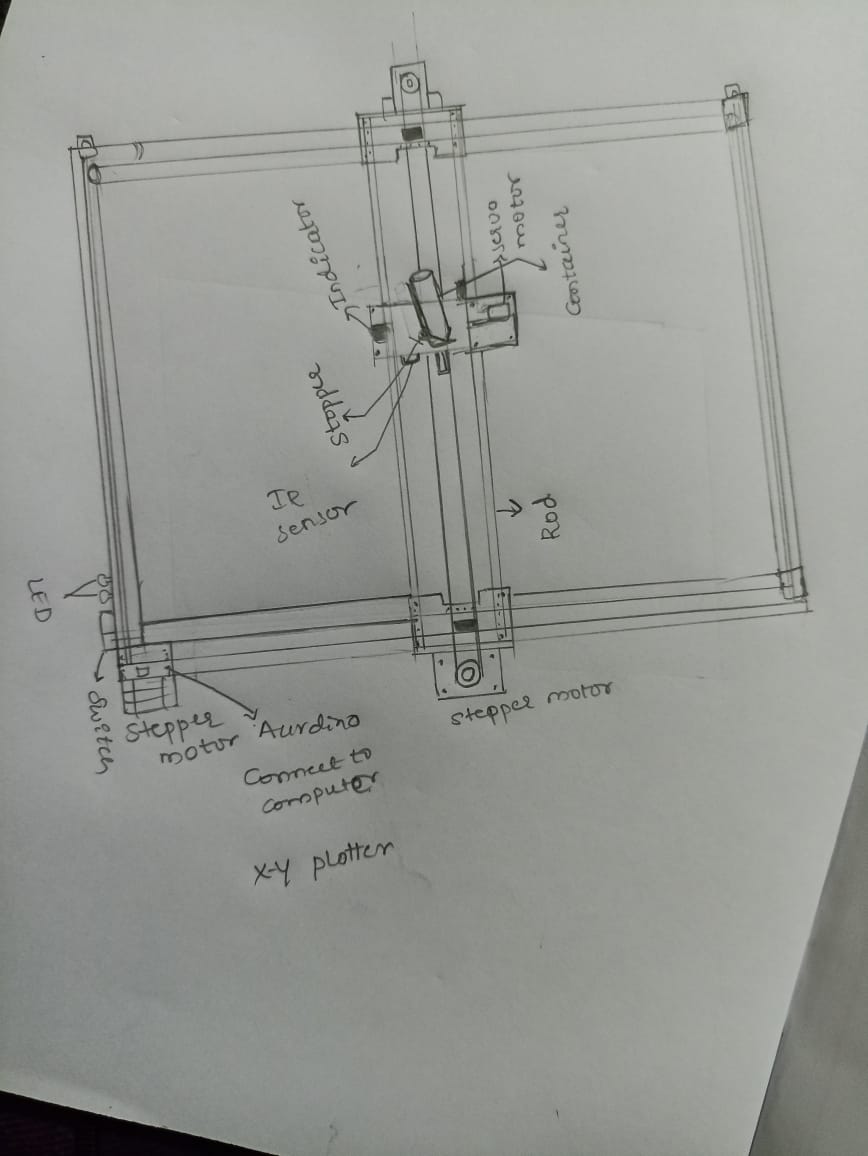 Indicator
servo
motor
Container
Stopper
IR
sensor
Rod
LED
Switch
Stepper
motor
Aurdino
Connect to
computer
stepper motor
X-Y plotter